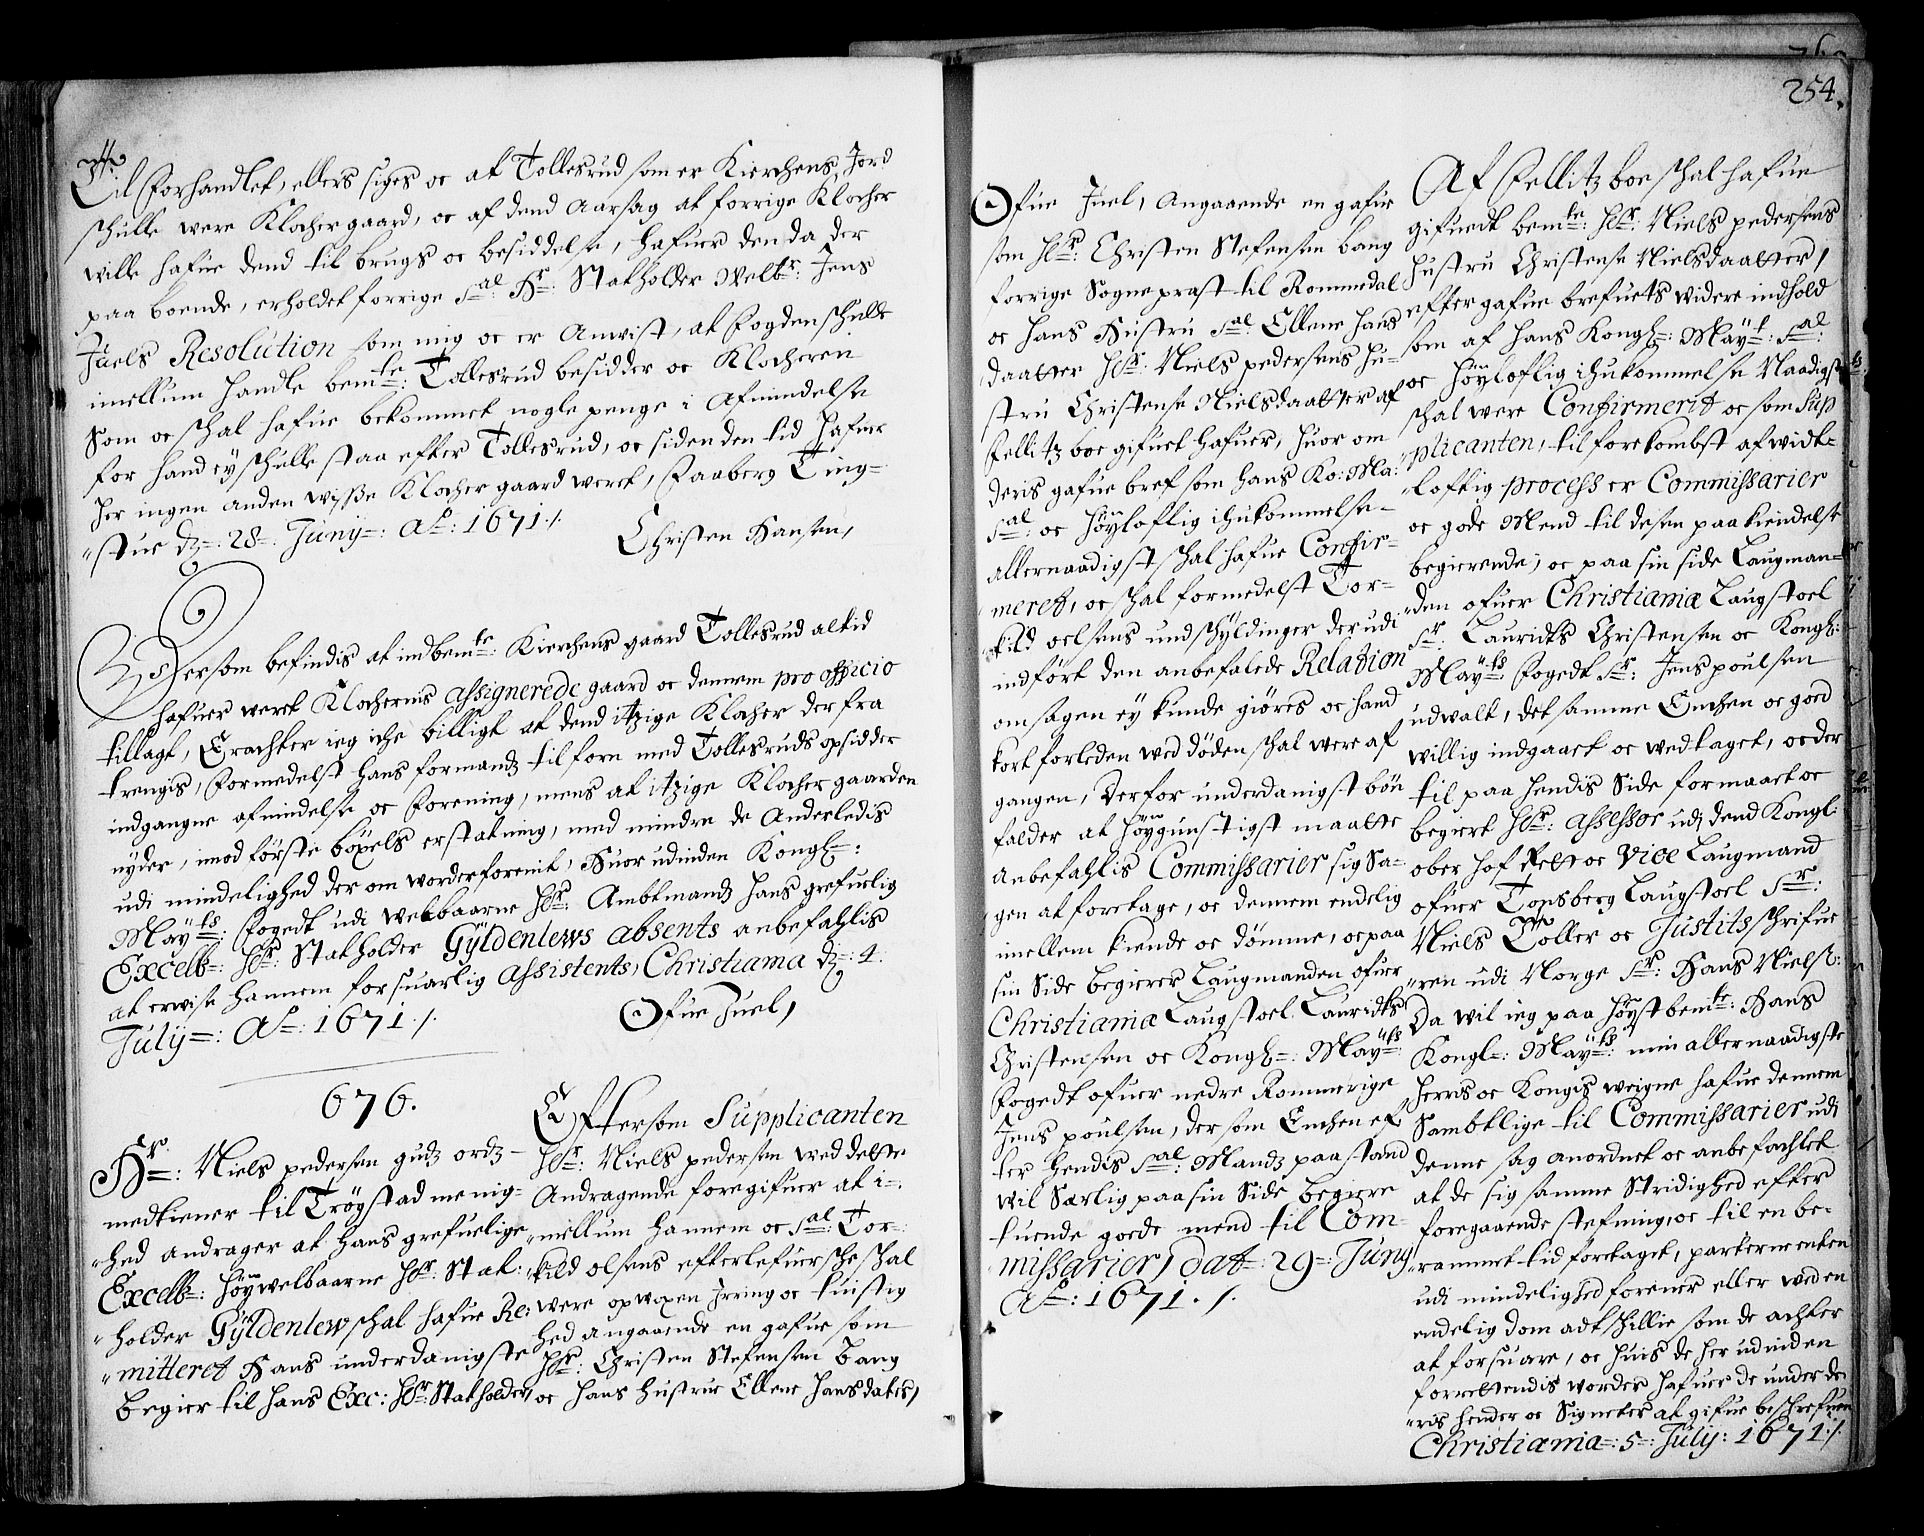 Til Forhandlet, ellers siges oc at Tollesrud som er Kierchens Jord
schulle were Klocher gaard, oc af dend Aarsag at forrige Klocher
wille hafue dend til brugs oc besiddelse, hafuer den da der
paa boende, erholdet forrige Sal: Hr: Statholder Welbr: Jens
Juels Resolution som mig oc er Anwist, at Fogden schulle
imellum handle bemte: Tollesrud besidder oc Klocheren
Som oc schal hafue bekommet nogle penge i Afmindelse
for hand ey schulle staa efter Tollesrud, oc siden den tid hafuer
her ingen anden wisse Klocher gaard weret, Faaberg Ting-
"stue dz: 28: Junij: Ao: 1671 ./.
Christen Hansen,
Dersom befindis at indbemte: Kierchens gaard Tollesrud altid
hafuer weret Klochernis assignerede gaard oc dennem pro officio
tillagt, Erachter ieg iche billigt at dend itzige Klocher der fra
trengis, formedelst hans formandz til forn med Tollesruds opsidder
indgangne afmindelse oc Forening, mens at itzige Klocher gaarden
nyder, imod første böxels erstatning, med mindre de Anderledis
udi mindelighed der om worder forenit, Huor udinden Kongl:
Mayts: Fogedt udi welbaarne Hr: Ambtmandz hans grefuelig
Excellz: Hr: Statholder Gyldenlews absents anbefahlis
at erwise hannem forsuarlig assistents, Christiania dz: 4:
July: Ao: 1671 ./.
Ofue Juel,
676.
Hr: Niels pedersen gudz ordz-
medtiener til Trögstad menig-
"hed andrager at hans grefuelige
Excellz: höywelbaarne Hr: Stat:
"holder Gyldenlew schal hafue Re:
"mitteret Hans underdanigste
begier til hans Exc: Hr: Statholder,
Eftersom Supplicanten
Hr: Niels pedersen wed dette
Andragende foregifuer at i-
"mellum hannem oc Sal: Tor-
"kild olsens efterlefuersche schal
were opwoxen Irring oc tuistig
hed angaaende en gafue som
Hr: Christen Stefensen bang
oc hans hustrue Ellene hansdater,
254.
Ofue Juel, Angaaende en gafue
som Hr: Christen Stefensen bang
forrige Sogneprest til Rommedal
oc hans Hustru Sal: Ellene hans
daatter Hr: Niels pedersens hu-
stru Christense Nielsdaatter af
Fellitz boe gifuet hafuer, huor om
deris gafue bref som hans Ko: Ma:
Sal: oc höyloflig ihukommelse-
allernaadigst schal hafue Confir-
meret, oc schal formedelst Tor-
"kild oelsens undschyldinger der udi
indfört den anbefalede Relation
om sagen ey kunde giöres oc hand
kort forleden wed döden schal were af
gangen, Derfor underdanigst bön
falder at höygunstigst maatte
anbefahlis Commissarier sig Sa-
"gen at foretage, oc dennem endelig
imellem kiende oc dömme, oc paa
sin Side begierer Laugmanden ofuer
Christiania Laugstoel Lauridts
Christensen oc Kongl: Mayts:
Fogedt ofuer nedre Rommerige
Jens poulsen, der som Enchen ef
ter hendis Sal: Mandz paastand
wil Særlig paa sin Side begiere
tuende goede mend til Com-
missarier, dat: 29: Juny
Ao: 1671 ./.
Af Fellitz boe schal hafue
gifuedt bemte: Hr: Niels pedersens
hustru Christense Nielsdaatter,
efter gafue brefuets widere indhold
som af hans Kongl: Mayt: Sal:
oc höyloflig ihukommelse Naadigst
schal were Confirmerit oc som Sup
plicanten, til forekombst af widt-
"løftig process er Commissarier
oc gode Mend til desen paakiendelse
begierende, oc paa sin side Laugman-
"den ofuer Christiania Laugstoel
Sr: Lauridts Christensen oc Kongl:
Mayts: Fogedt Sr: Jens poulsen
udwalt, det samme Enchen oc goed
willig indgaaet oc wedtaget, oc der
til paa hendis Side formaaet oc
begiert Hr: Assessor udj dend Kongl:
ober hof Rett oc Vice Laugmand
ofuer Tonsberg Laugstoel Sr:
Niels Töller oc Justits schrifue
"ren udi Norge Sr: Hans Nielss:
Da wil ieg paa höystbemte: Hans
Kongl: Mayts: min allernaadigste
Herris oc Kongis weigne hafue dennem
Sambtlige til Commissarier udi
denne sag anordnet oc anbefahlet
at de sig samme Stridighed efter
foregaaende stefning, oc til en be-
"rammet tid foretaget, parterne enten
udi mindelighed forener eller wed en
endelig dom adtschillie som de achter
at forsuare, oc huis de her udinden
forrettendis worder hafuer de under de-
"ris hender oc Signeter at gifue beschrefuen
Christiania: 5: July: 1671 ./.